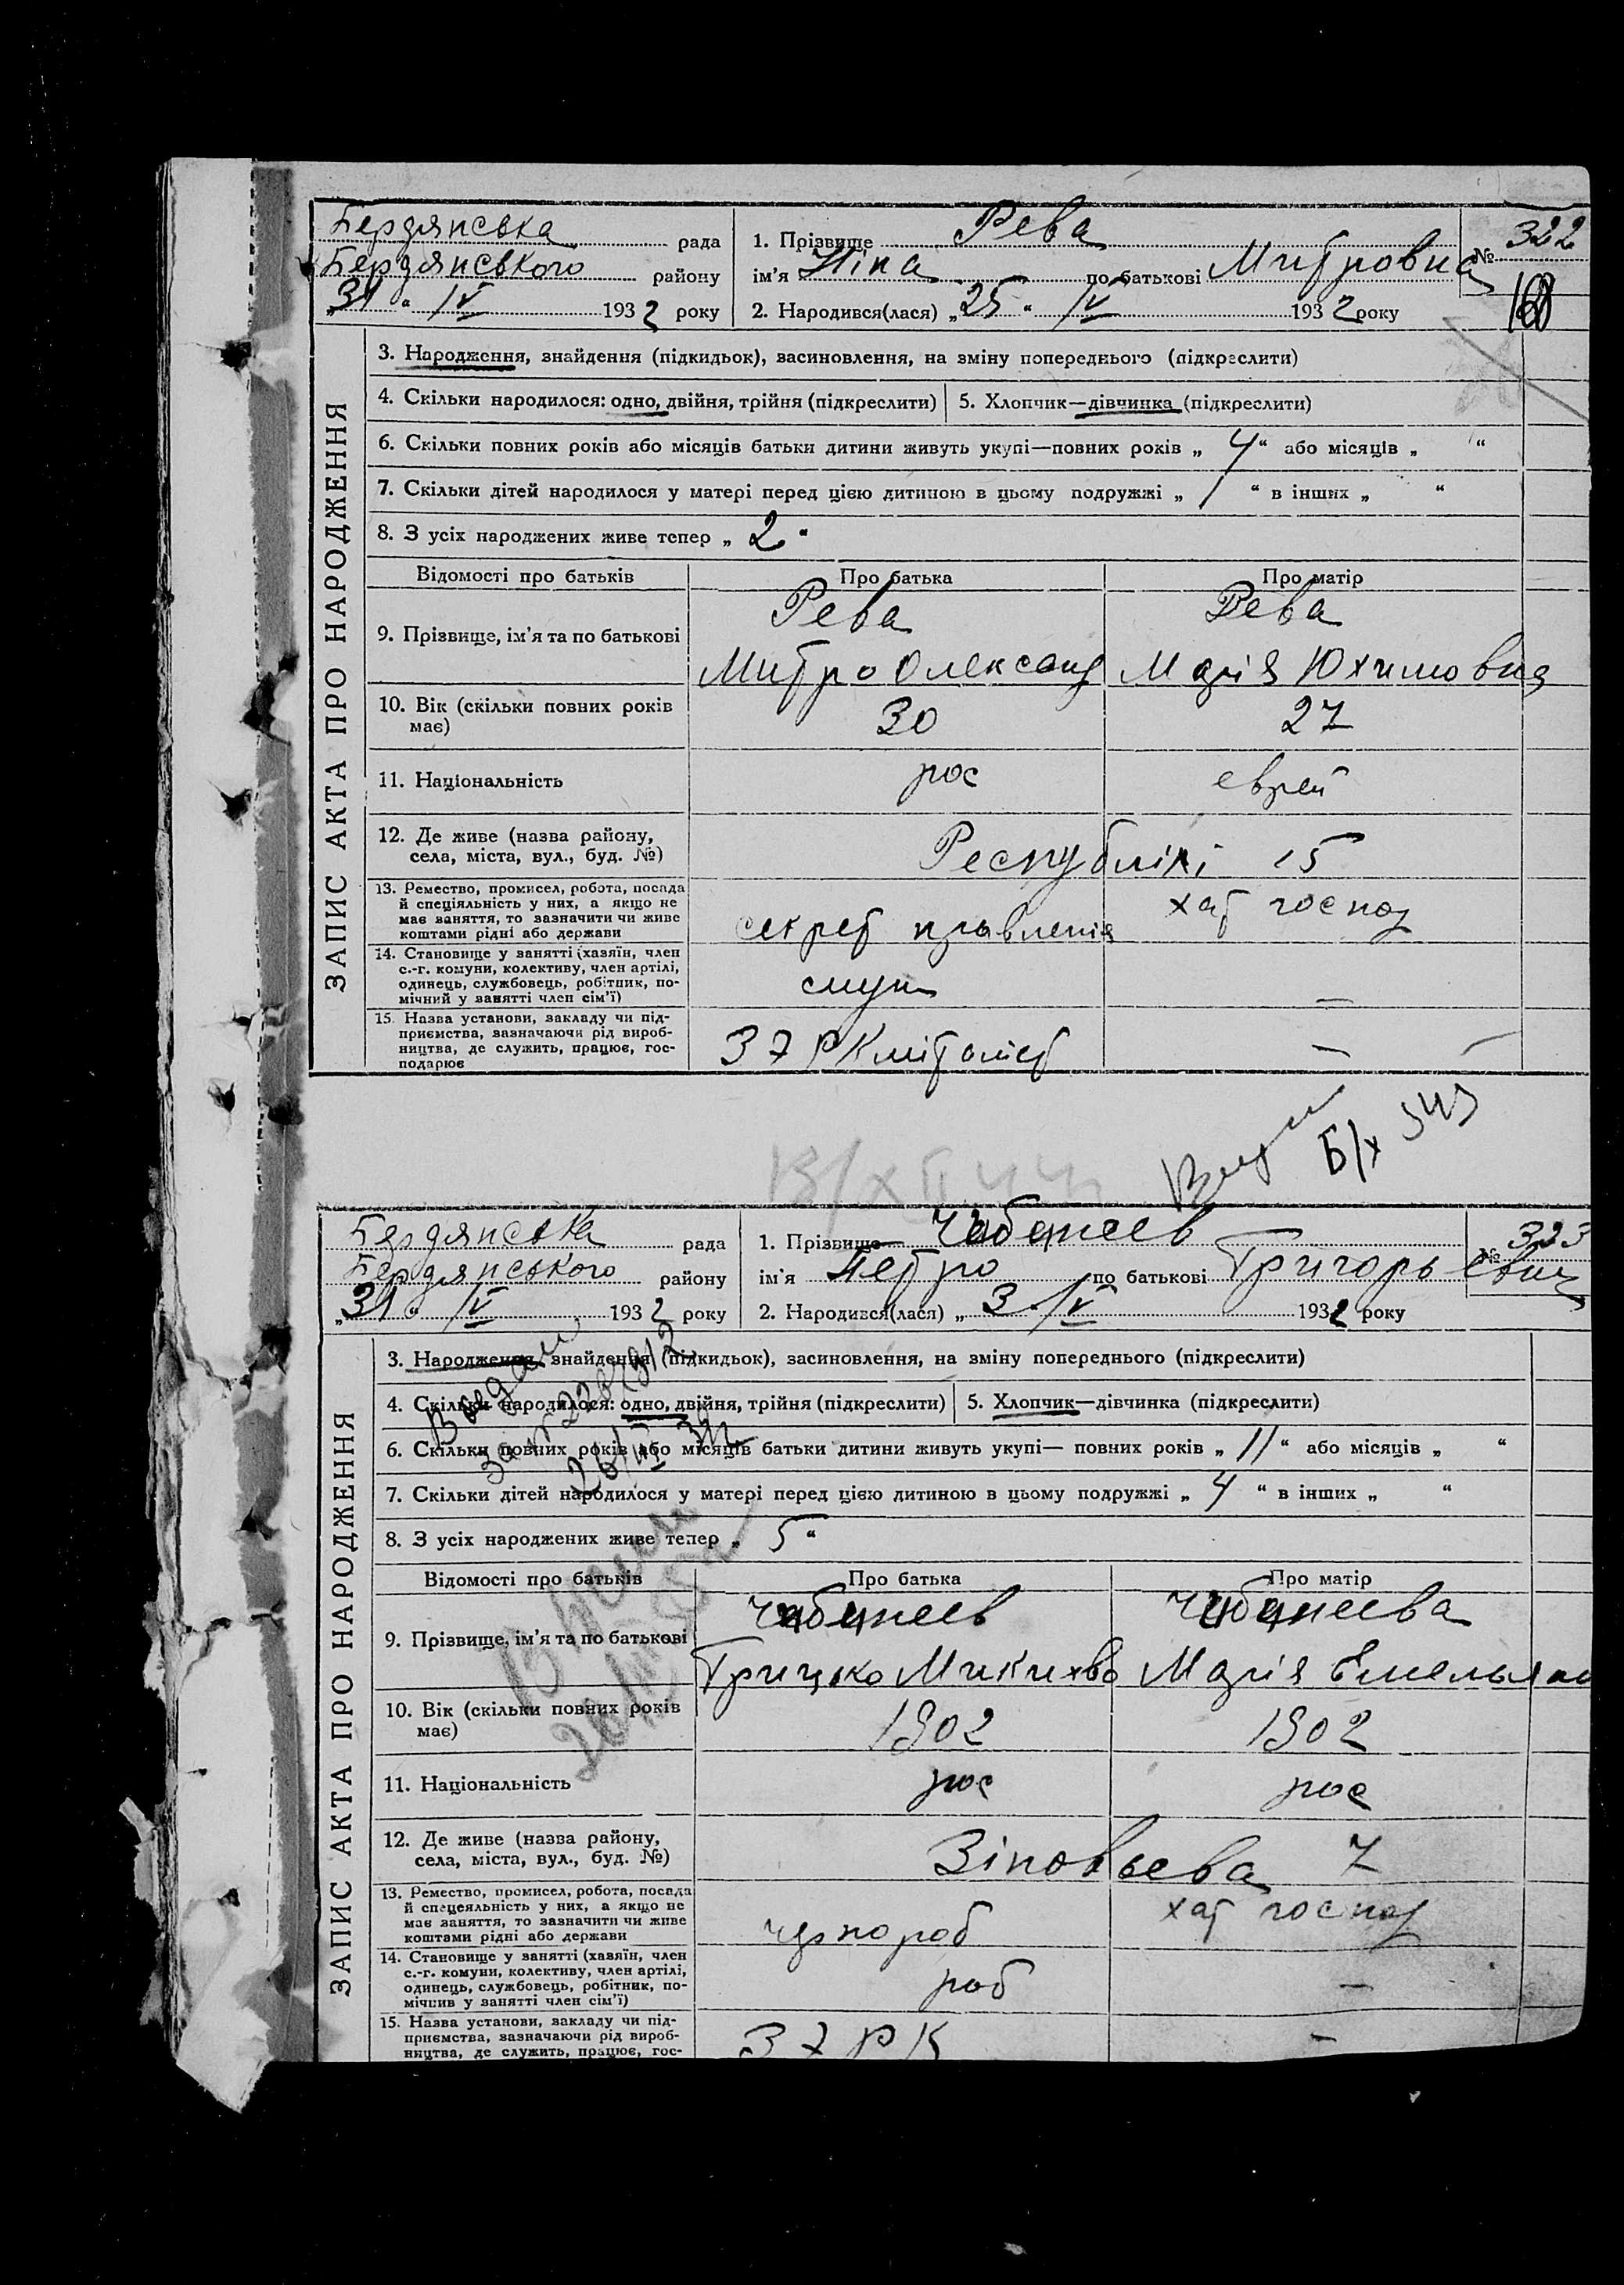 Бердянська рада
Бердянського району
„31“ IV 1932 року
1. Прізвище Рева
ім'я Ніна по батькові Митровна
2. Народився(лася) „25“ IV 1932 року
№ 322
168
ЗАПИС АКТА ПРО НАРОДЖЕННЯ
3. Народження, знайдення (підкидьок), засиновлення, на зміну попереднього (підкреслити)
4. Скільки народилося: одно, двійня, трійня (підкреслити) 5. Хлопчик—дівчинка (підкреслити)
6. Скільки повних років або місяців батьки дитини живуть укупі—повних років „ 4 “ або місяців „ “
7. Скільки дітей народилося у матері перед цією дитиною в цьому подружжі „ 1 “ в інших „ “
8. З усіх народжених живе тепер „ 2 “
Відомості про батьків Про батька Про матір
9. Прізвище, ім'я та по батькові
Рева Рева
Митро Олександ Марія Юхимовна
10. Вік (скільки повних років
має)
30 27
11. Національність рос еврей
12. Де живе (назва району,
села, міста, вул., буд. №)
Республікі 15
13. Ремество, промисел, робота, посада
й спеціяльність у них, а якщо не
має заняття, то зазначити чи живе
коштами рідні або держави
секрет правленія хат господ
14. Становище у занятті (хазяїн, член
с.-г. комуни, колективу, член артілі,
одинець, службовець, робітник, по-
мічний у занятті член сім'ї)
служ —
15. Назва установи, закладу чи під-
приємства, зазначаючи рід вироб-
ництва, де служить, працює, гос-
подарює
З 7 Р К —
Б/х
Бердянська рада
Бердянського району
„31“ IV 1932 року
1. Прізвище Чабанеев
ім'я Петро по батькові Григорьевич
2. Народився(лася) „ 3 IV 1932 року
№ 323
ЗАПИС АКТА ПРО НАРОДЖЕННЯ
3. Народження, знайдення (підкидьок), засиновлення, на зміну попереднього (підкреслити)
4. Скільки народилося: одно, двійня, трійня (підкреслити) 5. Хлопчик—дівчинка (підкреслити)
6. Скільки повних років або місяців батьки дитини живуть укупі— повних років „ 11 “ або місяців „ “
7. Скільки дітей народилося у матері перед цією дитиною в цьому подружжі „ 4 “ в інших „ “
8. З усіх народжених живе тепер „ 5 “
Відомості про батьків Про батька Про матір
9. Прізвище, ім'я та по батькові
Чабанеев Чабанеева
Грицько Марія Емельяно
10. Вік (скільки повних років
має)
1902 1902
11. Національність рос рос
12. Де живе (назва району,
села, міста, вул., буд. №)
Зіновьева 7
13. Ремество, промисел, робота, посада
й спецеяльність у них, а якщо не
має заняття, то зазначити чи живе
коштами рідні або держави
чорнороб хат господ
14. Становище у занятті (хазяїн, член
с.-г. комуни, колективу, член артілі,
одинець, службовець, робітник, по-
мічнив у занятті член сім'ї)
роб —
15. Назва установи, закладу чи під-
приємства, зазначаючи рід вироб-
ництва, де служить, працює, гос-
З 7 Р К —